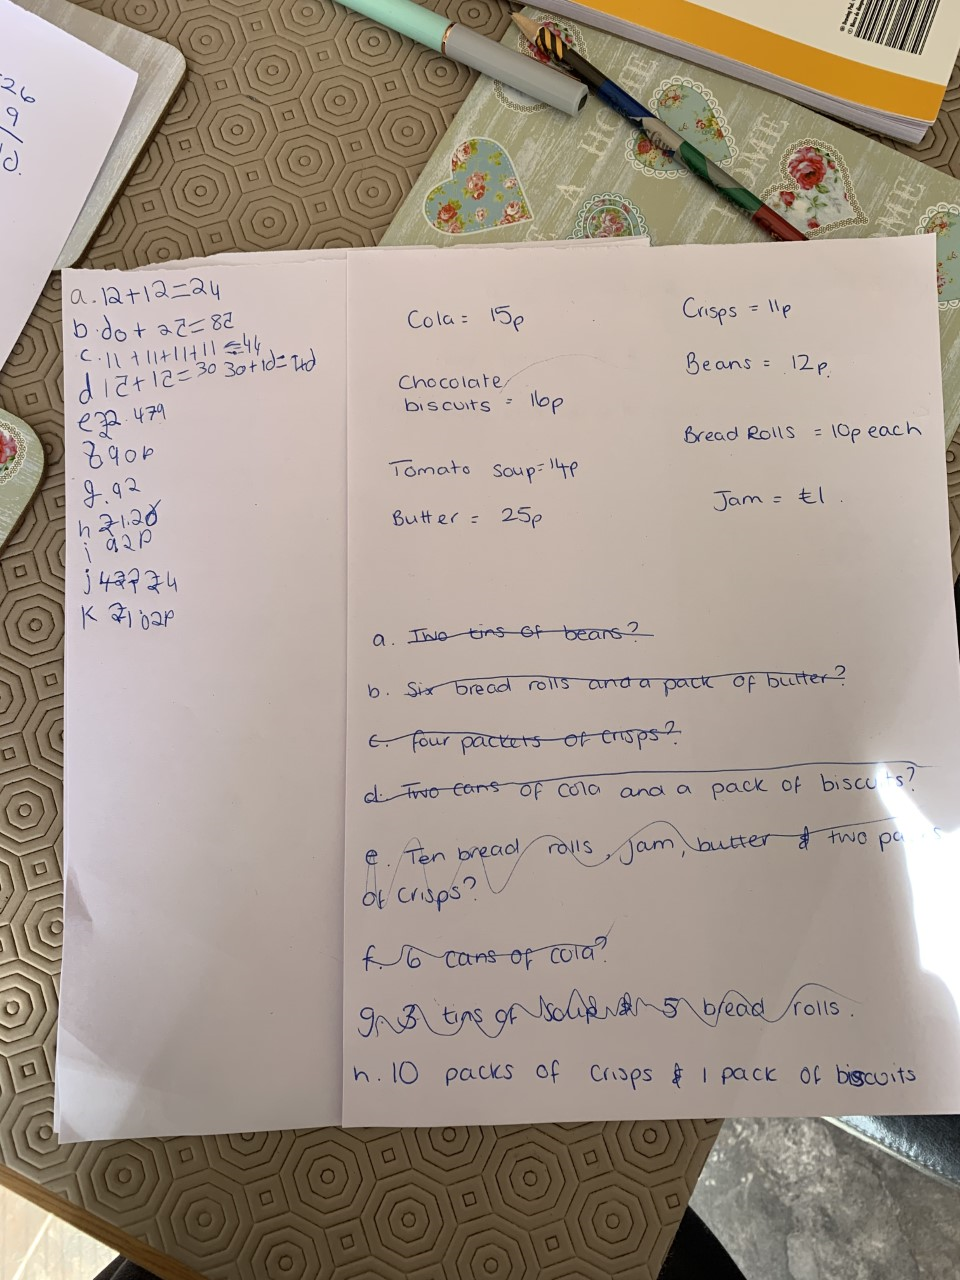 26
9
10.
a. 12+12=24
b. do + 25=85
c. 11 +11+11+11 =44
d 15+15=30 30+1d=
479
90p
g. 92
h £1.20
i 92p
j
K
Cola = 15p
Chocolate
biscuits = 16p
Tomato Soup = 14p
Butter = 25p
Crisps = 11p
Beans = 12p.
Bread Rolls = 10p each
Jam = £1.
a. Two tins of beans?
b. Six bread rolls and a pack of butter?
c. four packets of crisps?
d. Two cans of cola and a pack of biscuits?
e. Ten bread rolls, jam, butter & two
of crisps?
f. 6 cans of cola?
g. 3 tins of soup & 5 bread rolls.
h. 10 packs of crisps & 1 pack of biscuits
A HOME
HOME